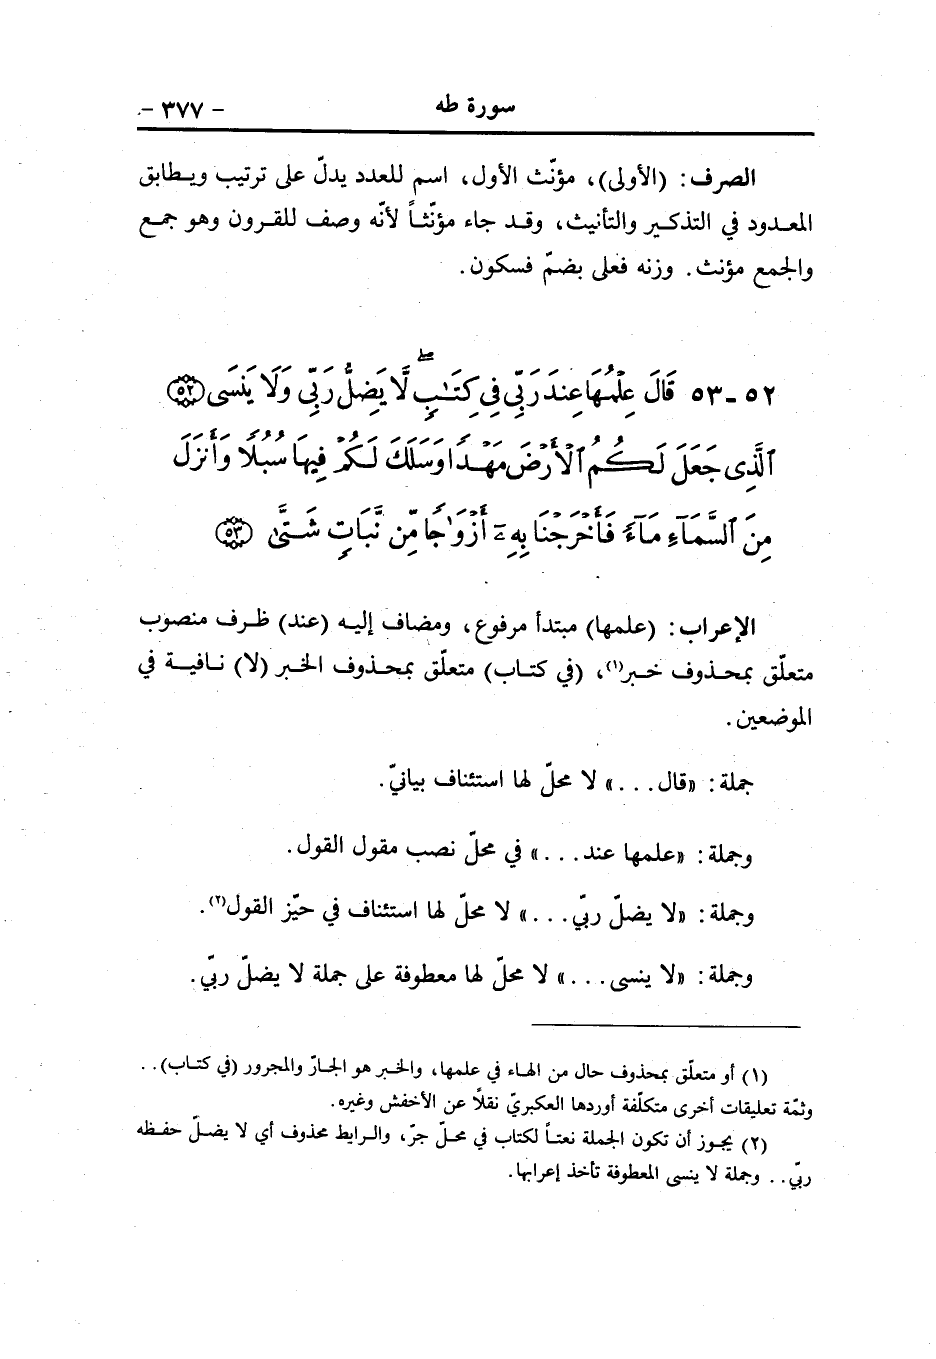 سورة طه - ٣٧٧ -
الصرف: (الأولى)، مؤنّث الأول، اسم للعدد يدلّ على ترتيب ويـطابق
المعـدود في التذكـير والتأنيث، وقـد جاء مؤنّثـاً لأنّه وصف للقرون وهو جمـع
والجمع مؤنث. وزنه فعلى بضمّ فسكون.
٥٢ - ٥٣ قَالَ عِلْمُهَا عِندَ رَبِّى فِى كِتَـٰبٍ ۖ لَّا يَضِلُّ رَبِّى وَلَا يَنسَى ﴿٥٢﴾
ٱلَّذِى جَعَلَ لَكُمُ ٱلْأَرْضَ مَهْدًا وَسَلَكَ لَكُمْ فِيهَا سُبُلًا وَأَنزَلَ
مِنَ ٱلسَّمَآءِ مَآءً فَأَخْرَجْنَا بِهِۦٓ أَزْوَٰجًا مِّن نَّبَاتٍ شَتَّىٰ ﴿٥٣﴾
الإعراب: (علمها) مبتدأ مرفوع، ومضاف إليـه (عند) ظـرف منصوب
متعلّق بمحـذوف خـبر(١)، (في كتـاب) متعلّق بمحـذوف الخبر (لا) نـافيـة في
الموضعين.
جملة: «قال...» لا محلّ لها استئناف بيانيّ.
وجملة: «علمها عند...» في محلّ نصب مقول القول.
وجملة: «لا يضلّ ربّي...» لا محلّ لها استئناف في حيّز القول(٢).
وجملة: «لا ينسى...» لا محلّ لها معطوفة على جملة لا يضلّ ربّي.
(١) أو متعلّق بمحذوف حال من الهاء في علمها، والخبر هو الجـارّ والمجرور (في كتـاب)..
وثمّة تعليقات أخرى متكلّفة أوردها العكبريّ نقلاً عن الأخفش وغيره.
(٢) يجـوز أن تكون الجملة نعتـاً لكتاب في محـلّ جرّ، والـرابط محذوف أي لا يضـلّ حفـظه
ربّي.. وجملة لا ينسى المعطوفة تأخذ إعرابها.